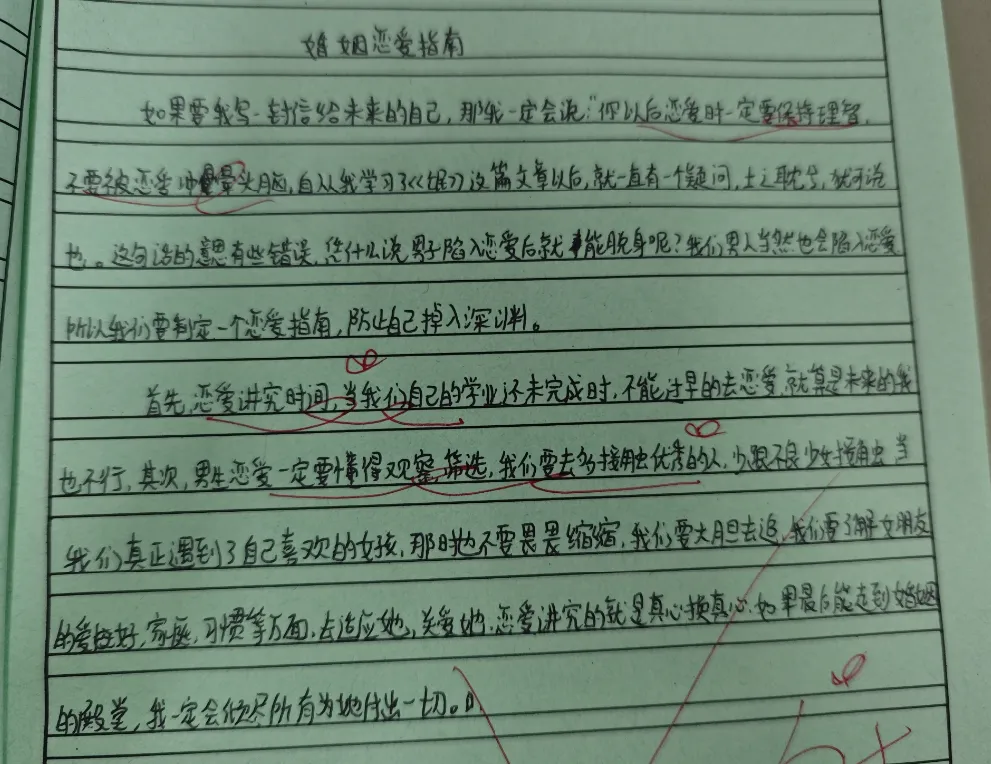 婚姻恋爱指南
如果要我写一封信给未来的自己，那我一定会说："你以后恋爱时一定要保持理智，
不要被恋爱冲晕头脑，自从我学习了《氓》这篇文章以后，就一直有一个疑问，士之耽兮，犹可说
也。这句话的意思有些错误，凭什么说男子陷入恋爱后就能脱身呢？我们男人当然也会陷入恋爱
所以我们要制定一个恋爱指南，防止自己掉入深渊。
首先，恋爱讲究时间，当我们自己的学业还未完成时，不能过早的去恋爱，就算是未来的我
也不行，其次，男生恋爱一定要懂得观察，筛选，我们要去多接触优秀的人，少跟不良少女接触，当
我们真正遇到了自己喜欢的女孩，那时也不要畏畏缩缩，我们要大胆去追，我们要了解女朋友
的爱好，家庭，习惯等方面，去适应她，关爱她，恋爱讲究的就是真心换真心，如果最后能走到婚姻
的殿堂，我一定会倾尽所有为她付出一切。